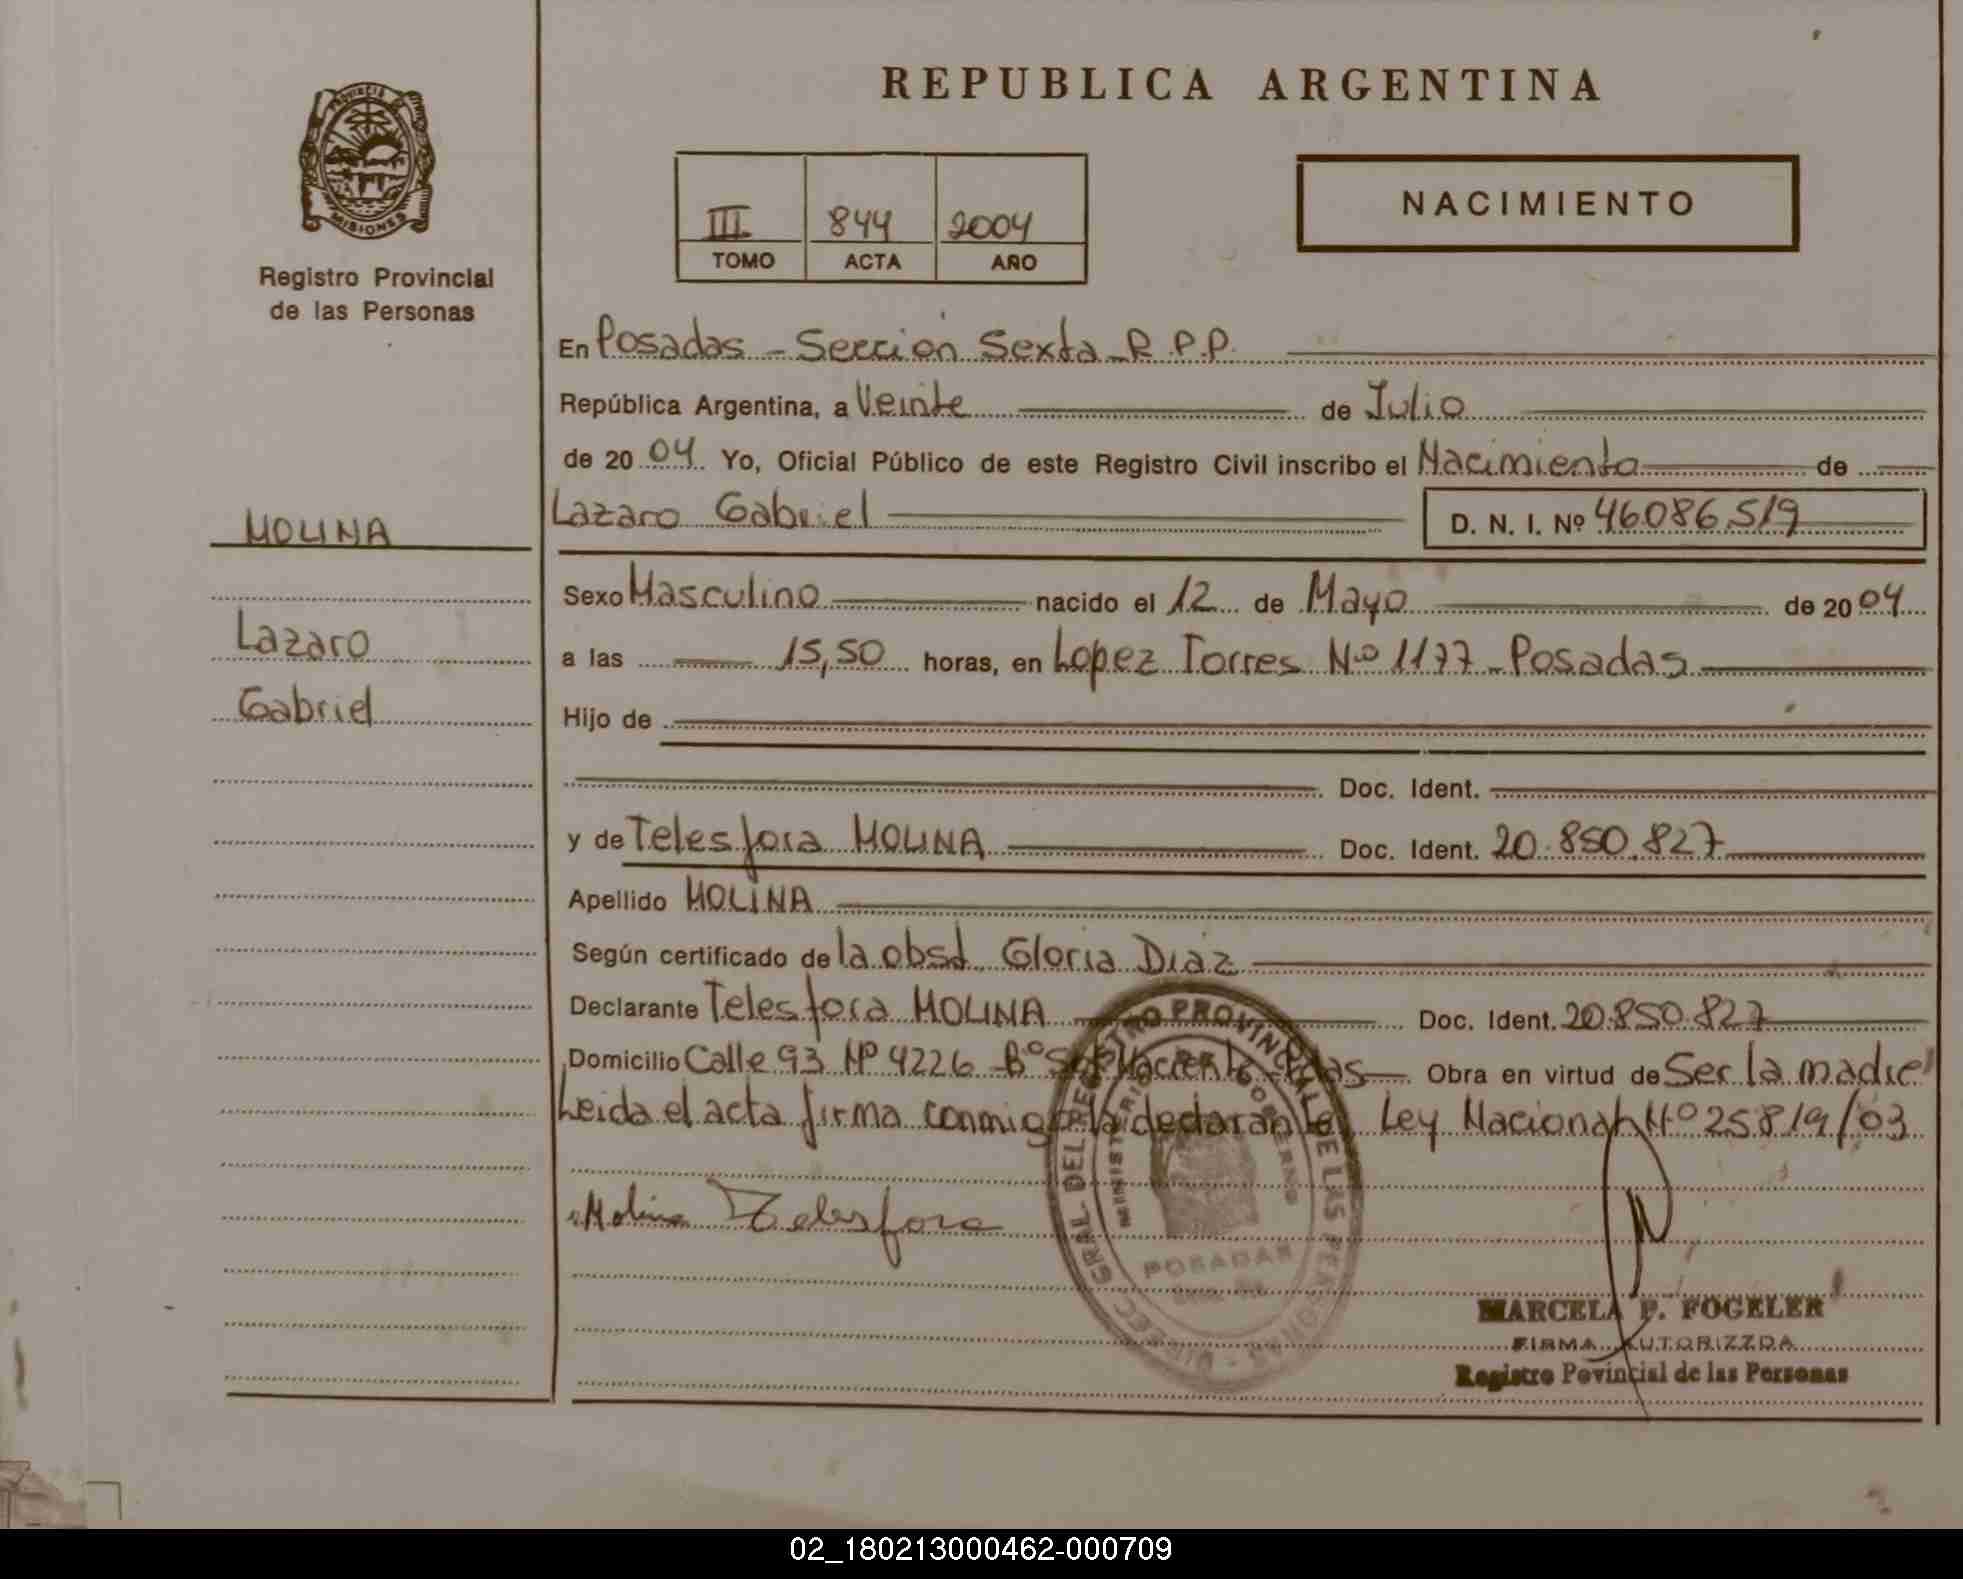 REPUBLICA ARGENTINA
PROVINCIA
MISIONES
Registro Provincial
de las Personas
III 844 2004
TOMO ACTA AÑO
NACIMIENTO
En Posadas - Sección Sexta R.P.P.
República Argentina, a Veinte de Julio
de 20 04 Yo, Oficial Público de este Registro Civil inscribo el Nacimiento de
Lazaro Gabriel D. N. I. Nº 46.086.519
MOLINA
Lazaro
Gabriel
Sexo Masculino nacido el 12 de Mayo de 20 04
a las 15,50 horas, en Lopez Torres Nº 1177 - Posadas
Hijo de
Doc. Ident.
y de Telesfora MOLINA Doc. Ident. 20.850.827
Apellido MOLINA
Según certificado de la obst. Gloria Diaz
Declarante Telesfora MOLINA Doc. Ident. 20.850.827
Domicilio Calle 93 Nº 4226 - Bº Obra en virtud de Ser la madre
Leida el acta firma conmigo la declarante Ley Nacional Nº 25819/03
Molina Telesfora
REGISTRO PROVINCIAL DE LAS PERSONAS
MINISTERIO DE GOBIERNO
POSADAS
MARCELA P. FOGELER
FIRMA AUTORIZZDA
Registro Povincial de las Personas
02_180213000462-000709